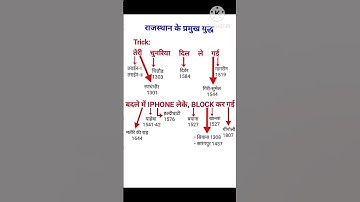 राजस्थान के प्रमुख युद्ध
Trick:
तेरी चुनरिया दिल ले गई
तराईन-I
तराईन-II
चित्तौड़
1303
दिवेर
1584
गागरोन
1519
रणथंभौर
1301
गिरि-सुमेल
1544
बदले में IPHONE लेके, BLOCK कर गई
पाहेबा
1541-42
हल्दीघाटी
1576
बयाना
1527
खानवा
1527
मतीरे की राड़
1644
- सिवाना 1308
- सारंगपुर 1437
1807